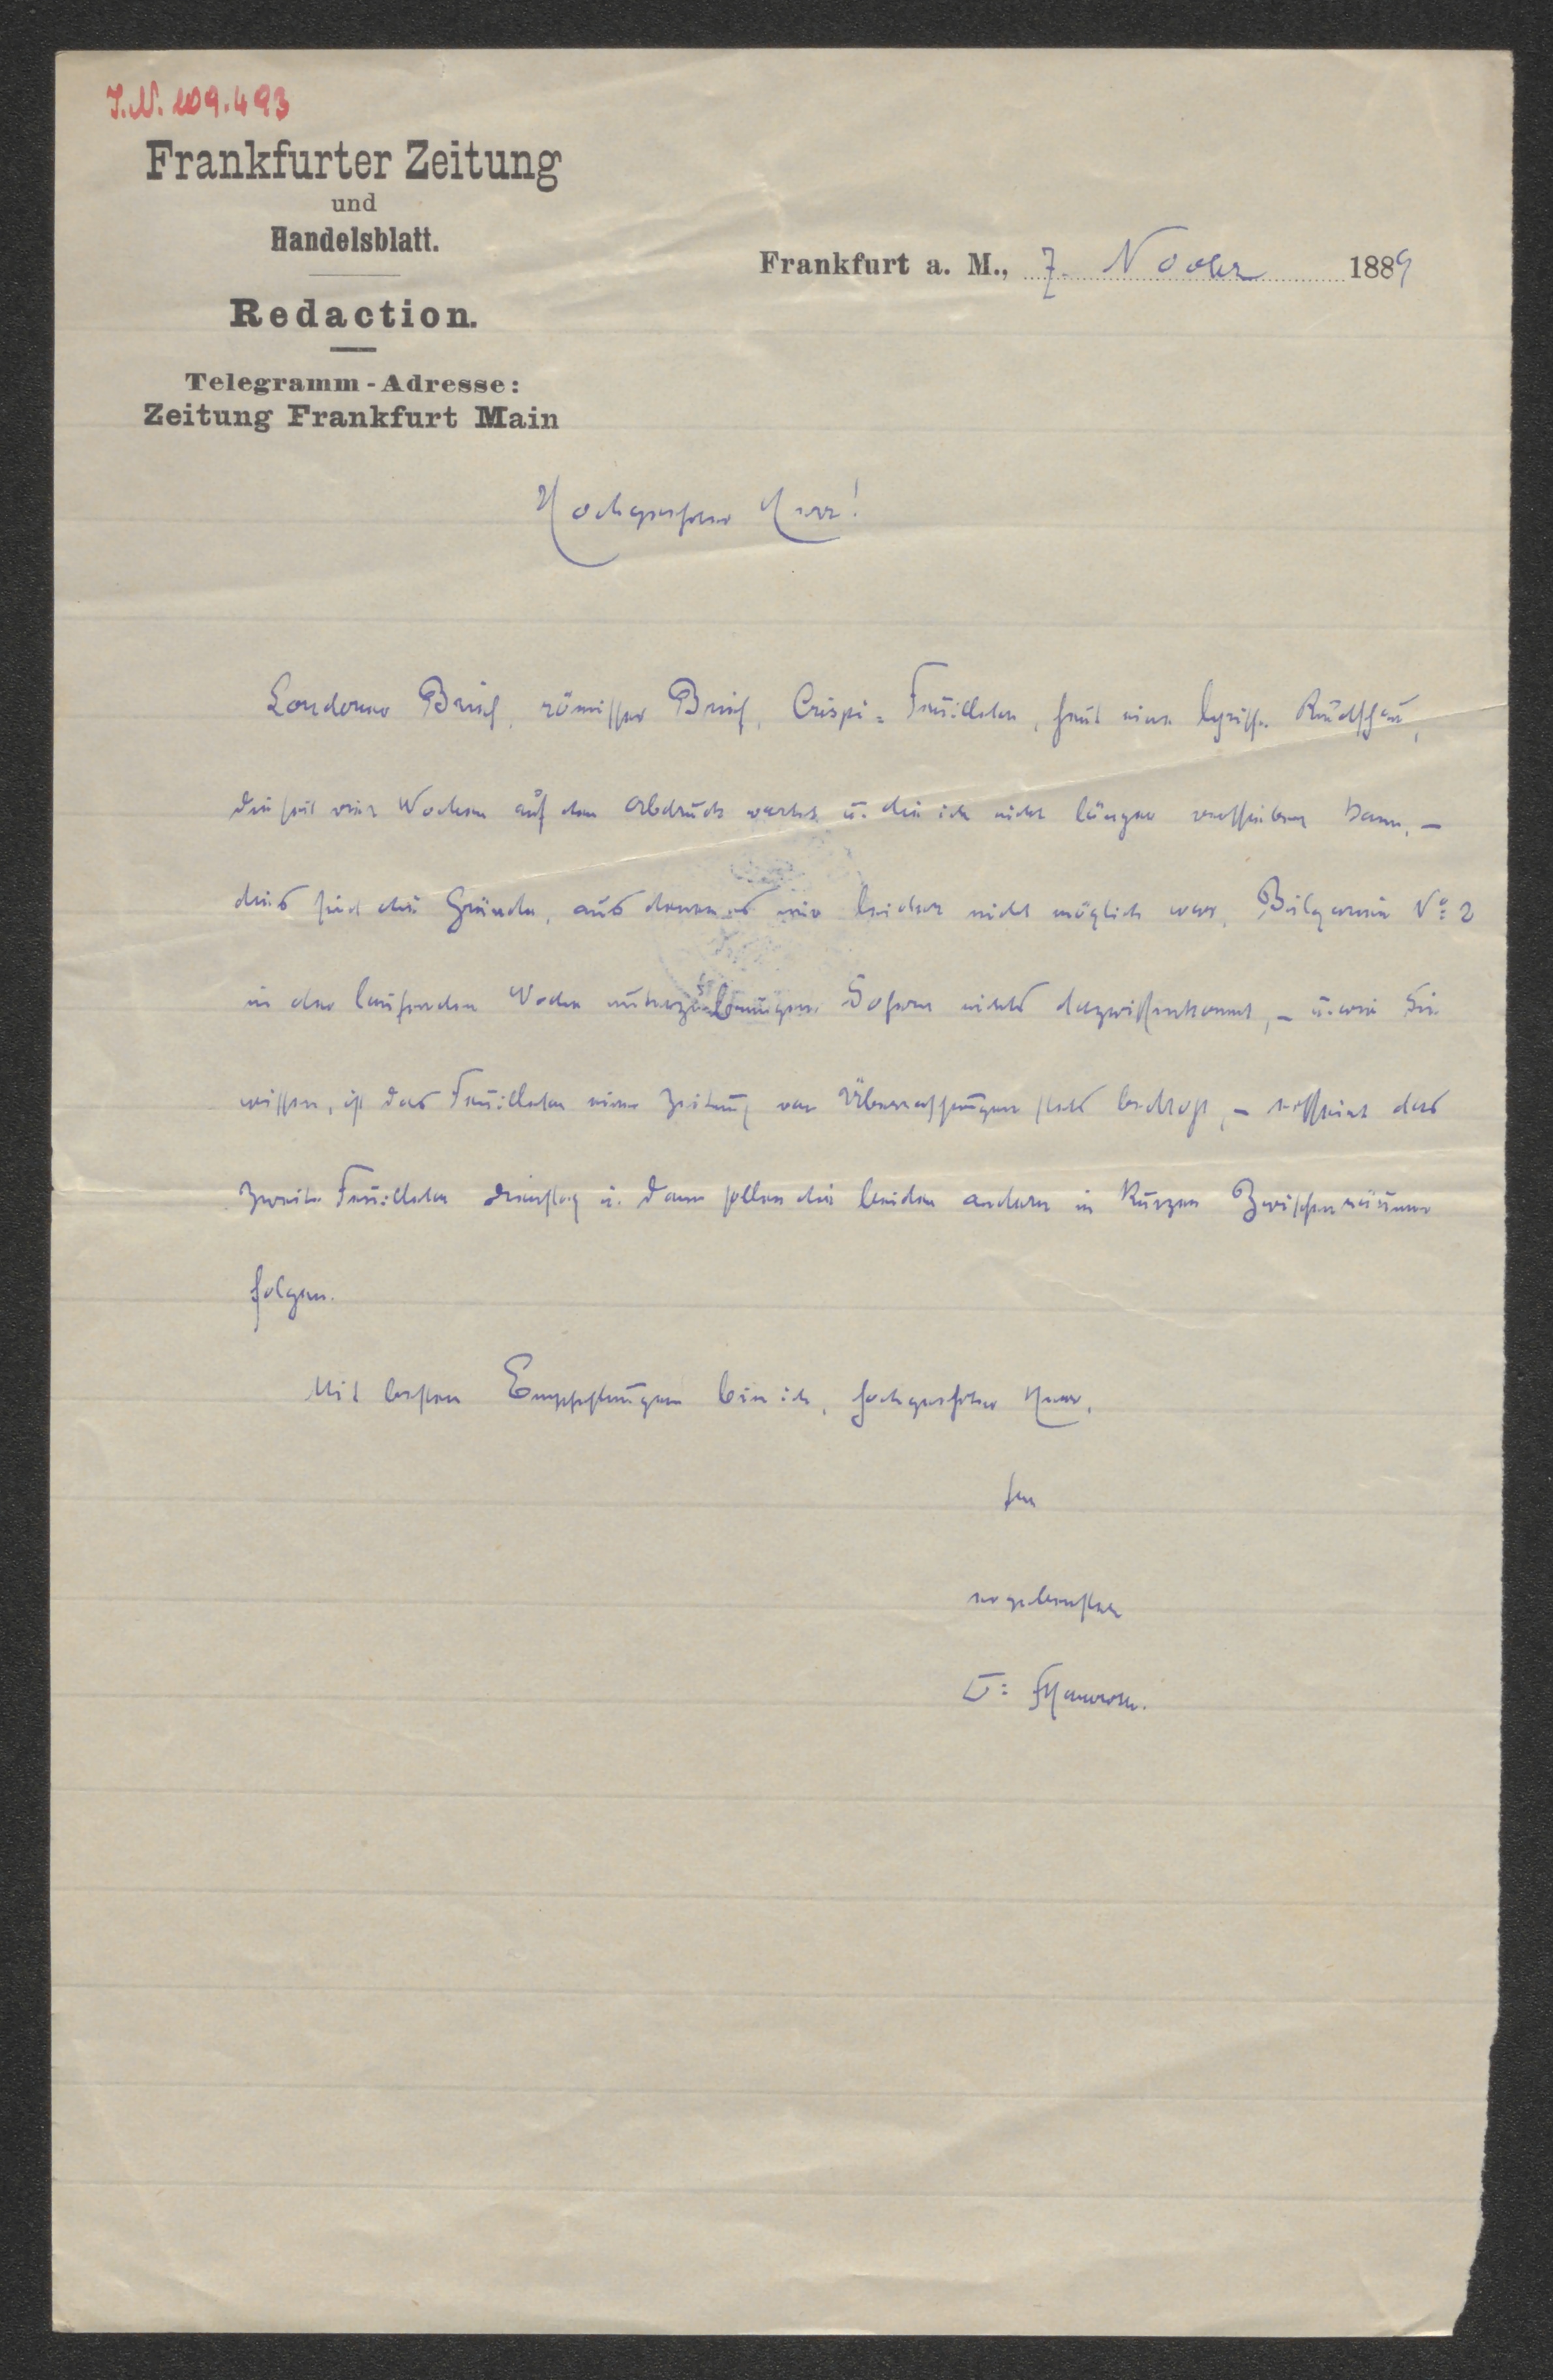 J.N. 109.493
Frankfurter Zeitung
und
Handelsblatt.
Redaction.
Telegramm-Adresse:
Zeitung Frankfurt Main
Frankfurt a. M., 7. Novbr 1889
Hochgeehrter Herr!
Londoner Brief, römischer Brief, Crispi-Feuilleton, heut eine lyrische Rundschau,
die seit vier Wochen auf den Abdruck wartet u. die ich nicht länger verschieben kann, –
dies sind die Gründe, aus denen es mir leider nicht möglich war, Bulgarien No 2
in der laufenden Woche unterzubringen. Sofern nichts dazwischenkommt, – u. wie Sie
wissen, ist das Feuilleton einer Zeitung von Überraschungen stets bedroht, – erscheint das
zweite Feuilleton Dienstag u. dann sollen die beiden andern in kurzen Zwischenräumen
folgen.
Mit besten Empfehlungen bin ich, hochgeehrter Herr,
Ihr
ergebenster